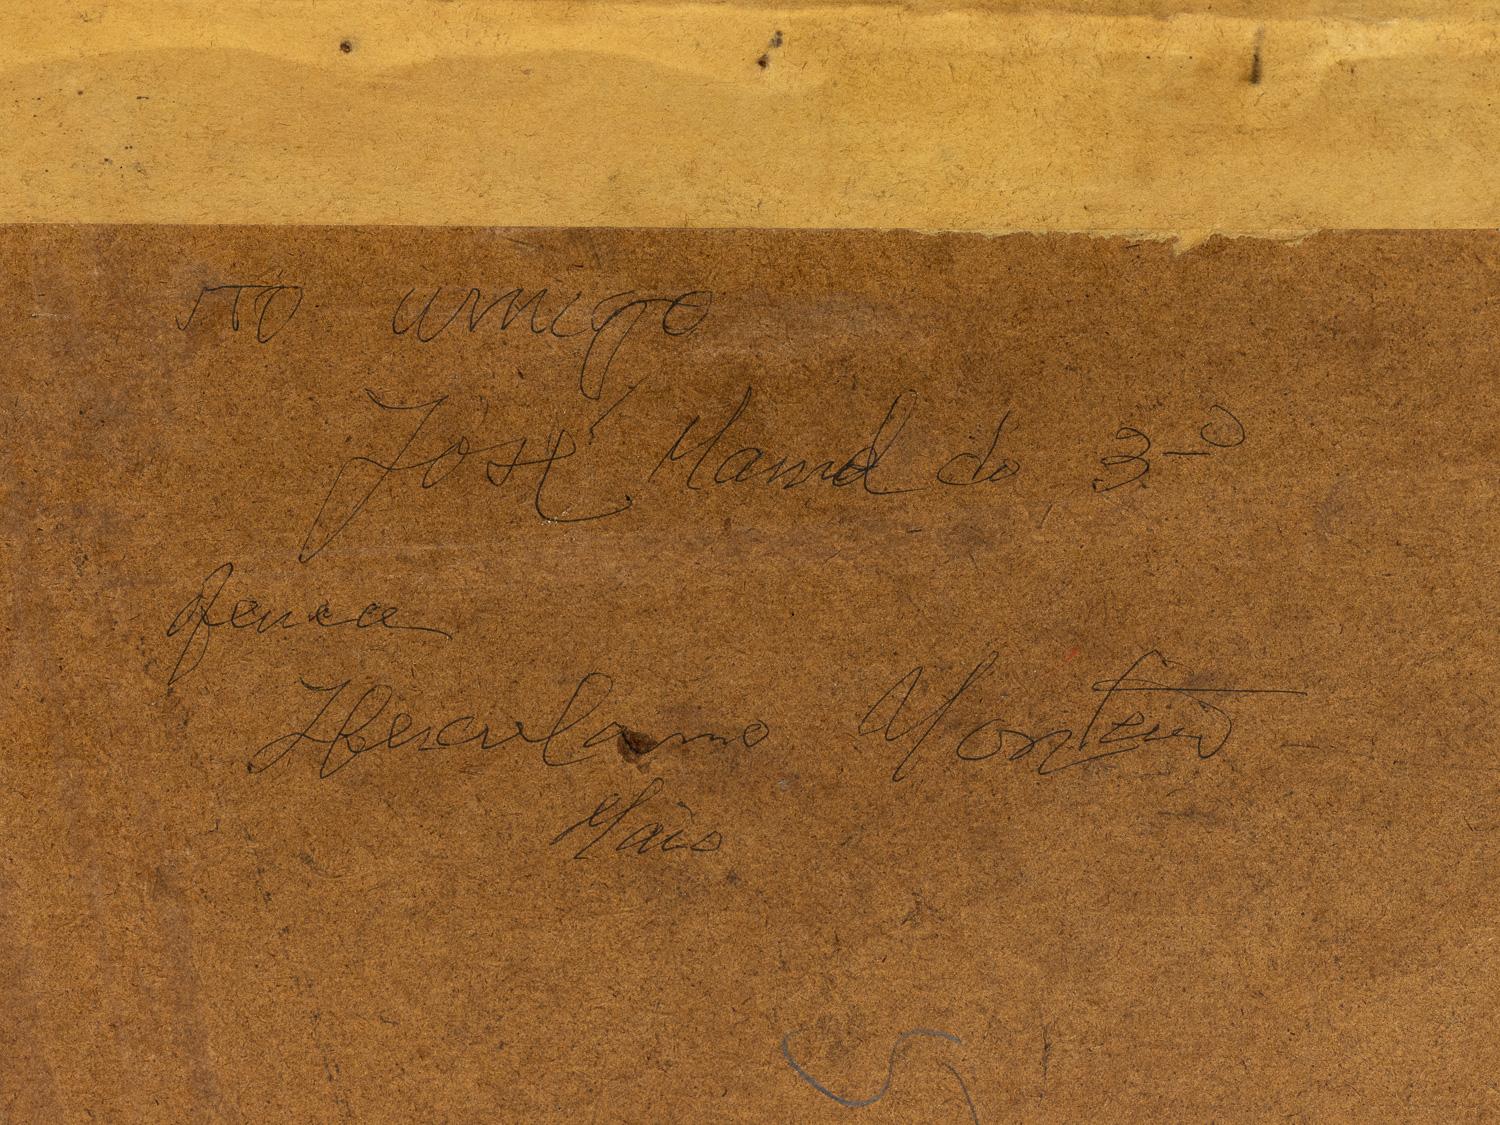 Ao amigo
José Manuel do 3º
oferece
Herculano Monteiro
Maio